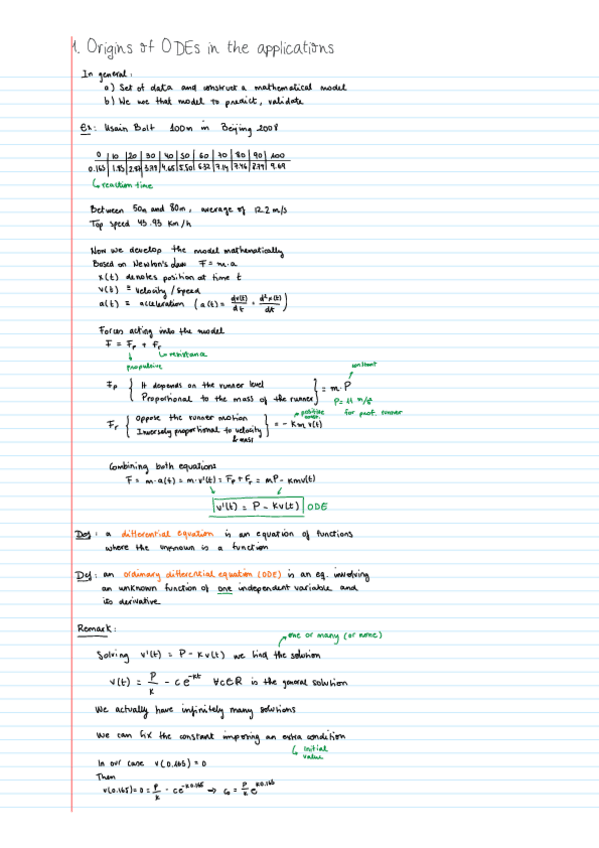 1. Origins of ODEs in the applications
In general:
a) Set of data and construct a mathematical model
b) We use that model to predict, validate
Ex: Usain Bolt 100m in Beijing 2008
0 | 10 | 20 | 30 | 40 | 50 | 60 | 70 | 80 | 90 | 100
0.165 | 1.85 | 2.87 | 3.78 | 4.65 | 5.50 | 6.32 | 7.14 | 7.96 | 8.79 | 9.69
↳ reaction time
Between 50m and 80m, average of 12.2 m/s
Top speed 43.93 Km/h
Now we develop the model mathematically
Based on Newton's law F = m·a
x(t) denotes position at time t
v(t) = velocity / speed
a(t) = acceleration (a(t) = dv(t)/dt = d²x(t)/dt)
Forces acting into the model
F = Fp + Fr
↳ resistance
propulsive
constant
Fp { It depends on the runner level
Proportional to the mass of the runner } = m·P
P = 11 m/s² for prof. runner
Fr { Oppose the runner motion
Inversely proportional to velocity & mass } = - K m v(t)
positive const.
Combining both equations
F = m·a(t) = m·v'(t) = Fp + Fr = mP - Kmv(t)
v'(t) = P - Kv(t) ODE
Def: a differential equation is an equation of functions
where the unknown is a function
Def: an ordinary differential equation (ODE) is an eq. involving
an unknown function of one independent variable and
its derivative
Remark:
one or many (or none)
Solving v'(t) = P - Kv(t) we find the solution
v(t) = P/K - ce^-kt ∀c∈R is the general solution
We actually have infinitely many solutions
We can fix the constant imposing an extra condition
↳ initial value
In our case v(0.165) = 0
Then
v(0.165) = 0 = P/K - ce^-K0.165 → c = P/K e^K0.165